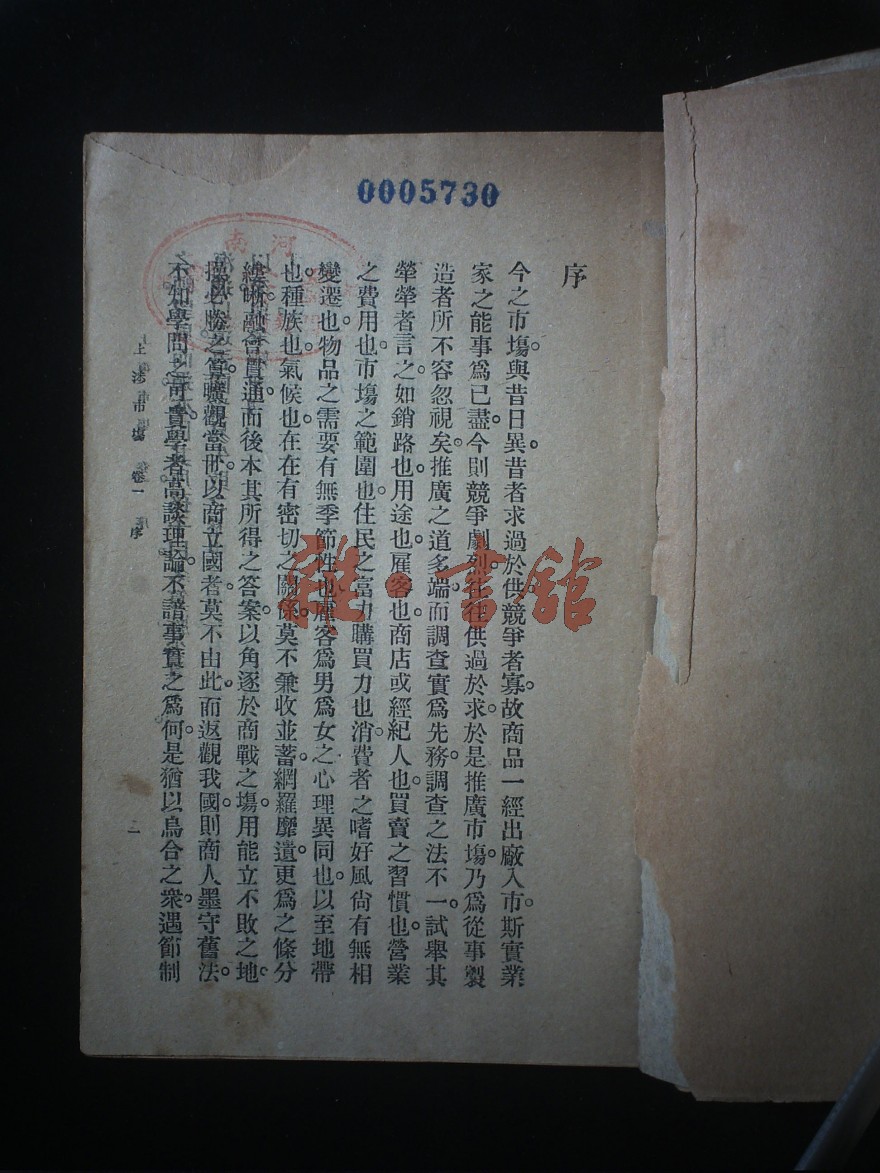 0005730
河南
序
今之市塲與昔日異。昔者求過於供。競爭者寡。故商品一經出廠入市。斯實業
家之能事爲已盡。今則競爭劇烈。往往供過於求。於是推廣市塲。乃爲從事製
造者所不容忽視矣。推廣之道多端。而調查實爲先務。調查之法不一。試舉其
犖犖者言之。如銷路也。用途也。雇客也。商店或經紀人也。買賣之習慣也。營業
之費用也。市塲之範圍也。住民之富力購買力也。消費者之嗜好風尙有無相
變遷也。物品之需要有無季節性也。雇客爲男爲女之心理異同也。以至地帶
也。種族也。氣候也。在在有密切之關係。莫不兼收並蓄。網羅靡遺。更爲之條分
縷晰。融會貫通。而後本其所得之答案。以角逐於商戰之塲。用能立不敗之地。
操必勝之算。曠觀當世。以商立國者。莫不由此。而返觀我國。則商人墨守舊法。
不知學問之可貴。學者高談理論。不諳事實之爲何。是猶以烏合之衆。遇節制
上海市塲 卷一 序
雜·書館